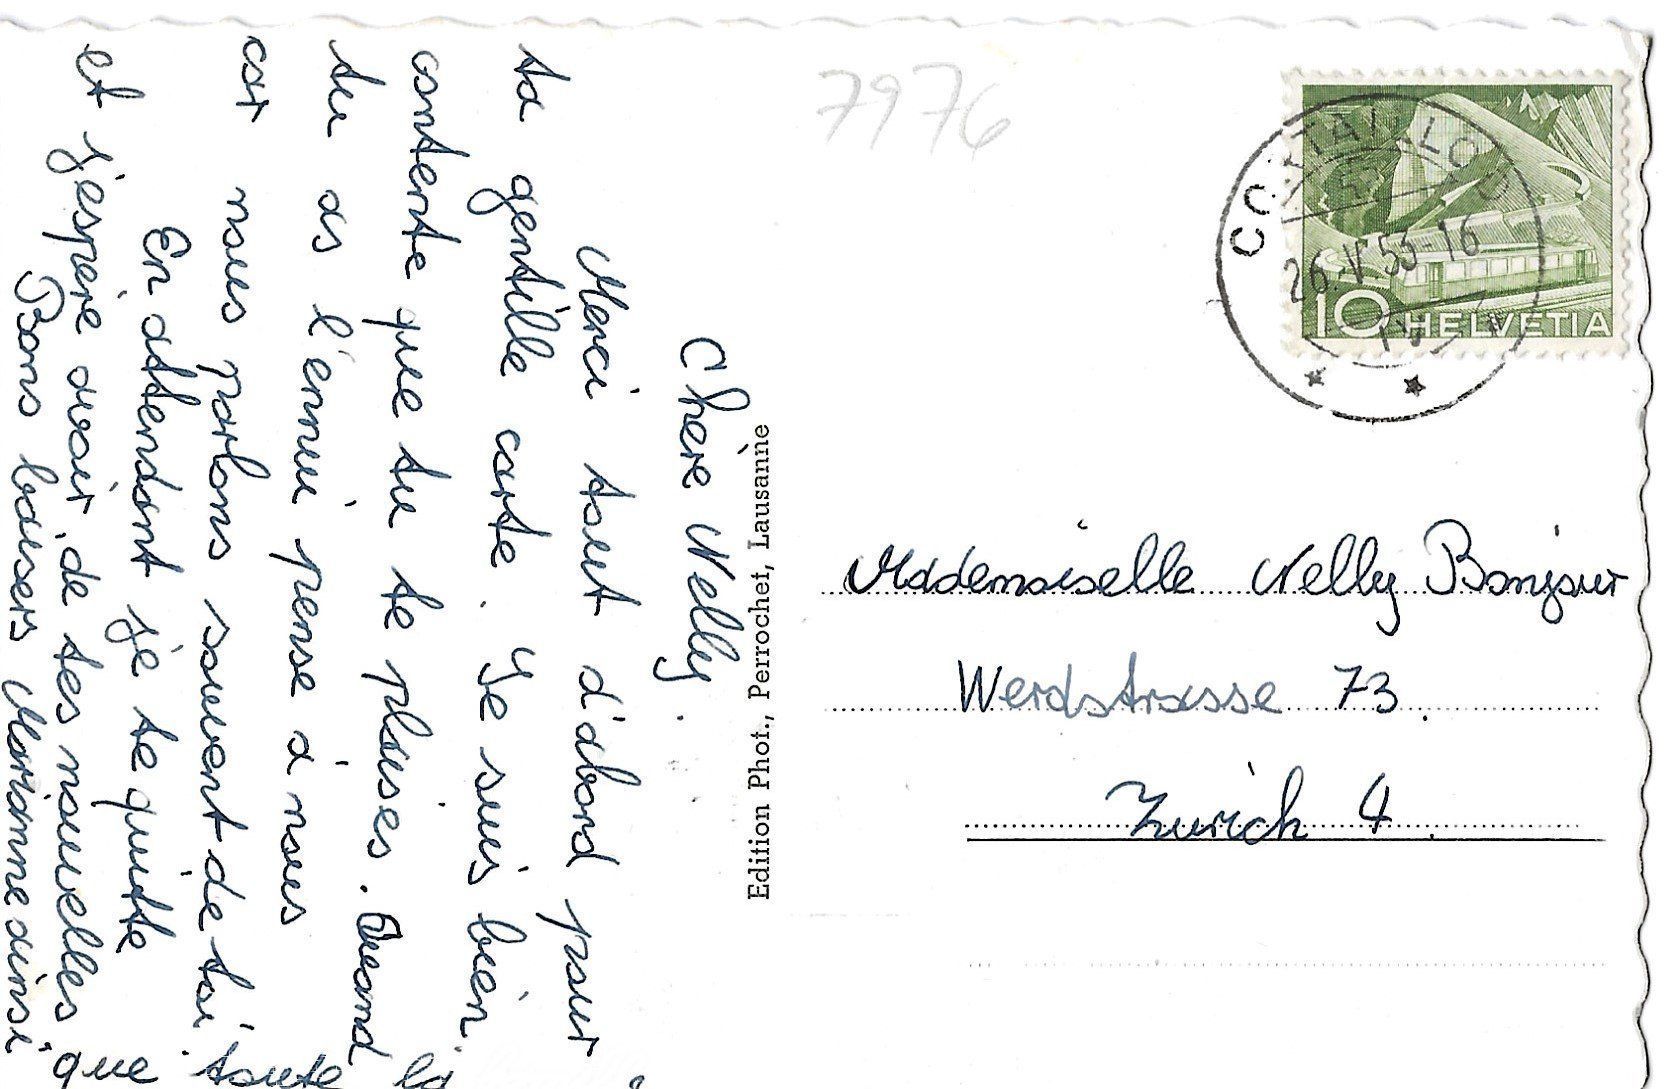 Chère Nelly.
Merci tout d'abord pour
ta gentille carte. Je suis bien
contente que tu te plaises. Quand
tu as l'ennui pense à nous
car nous parlons souvent de toi.
En attendant je te quitte
et j'espère avoir de tes nouvelles
Bons baisers Marianne ainsi
que toute la
Edition Phot., Perrochet, Lausanne
7976
CORTAILLOD
26.V.53-16
10 HELVETIA
Mademoiselle Nelly Bonjour
Werdstrasse 73.
Zurich 4.